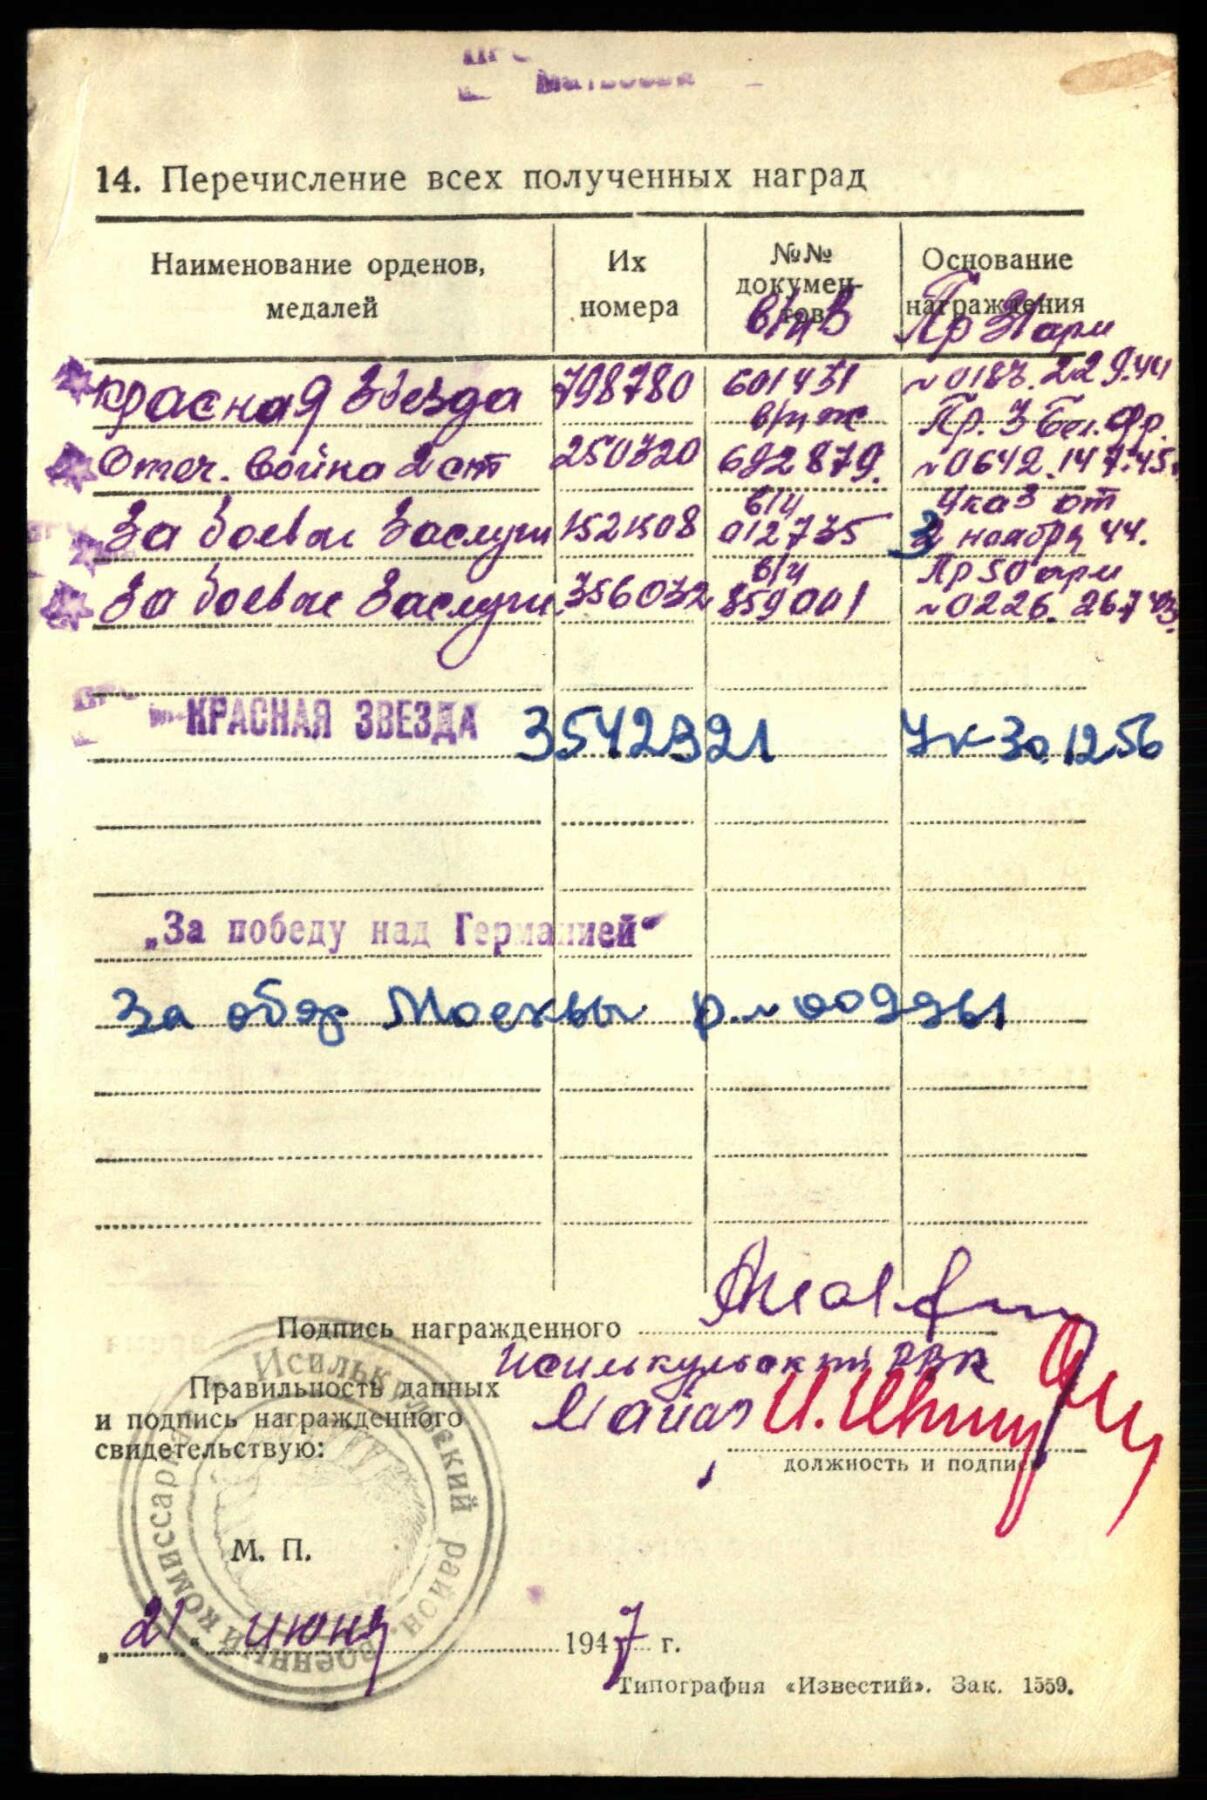 14. Перечисление всех полученных наград
Наименование орденов, медалей
Их номера
№№ документов
Основание награждения
в/и В Пр 31 арм
Красная Звезда 798780 601431 № 0183. 22 9.44
Пр. 3 Бел. Фр.
Отеч. война 2 ст 250320 692879. № 0642. 14 7.45.
б/и Указ от
За боевые Заслуги 1521508 012735 3 ноября 44.
б/и Пр 50 арм
За боевые Заслуги 356032 859001 № 0226. 26.7 43
КРАСНАЯ ЗВЕЗДА 3542921 Ук 30.12.56
„За победу над Германией“
За обор Москвы р. № 009961
Подпись награжденного
Исилькульский РВК
Правильность данных
и подпись награжденного
свидетельствую:
Майор
должность и подпись
Исилькульский район. военный комиссариат
М. П.
„21“ июня 1947 г.
Типография «Известий». Зак. 1559.